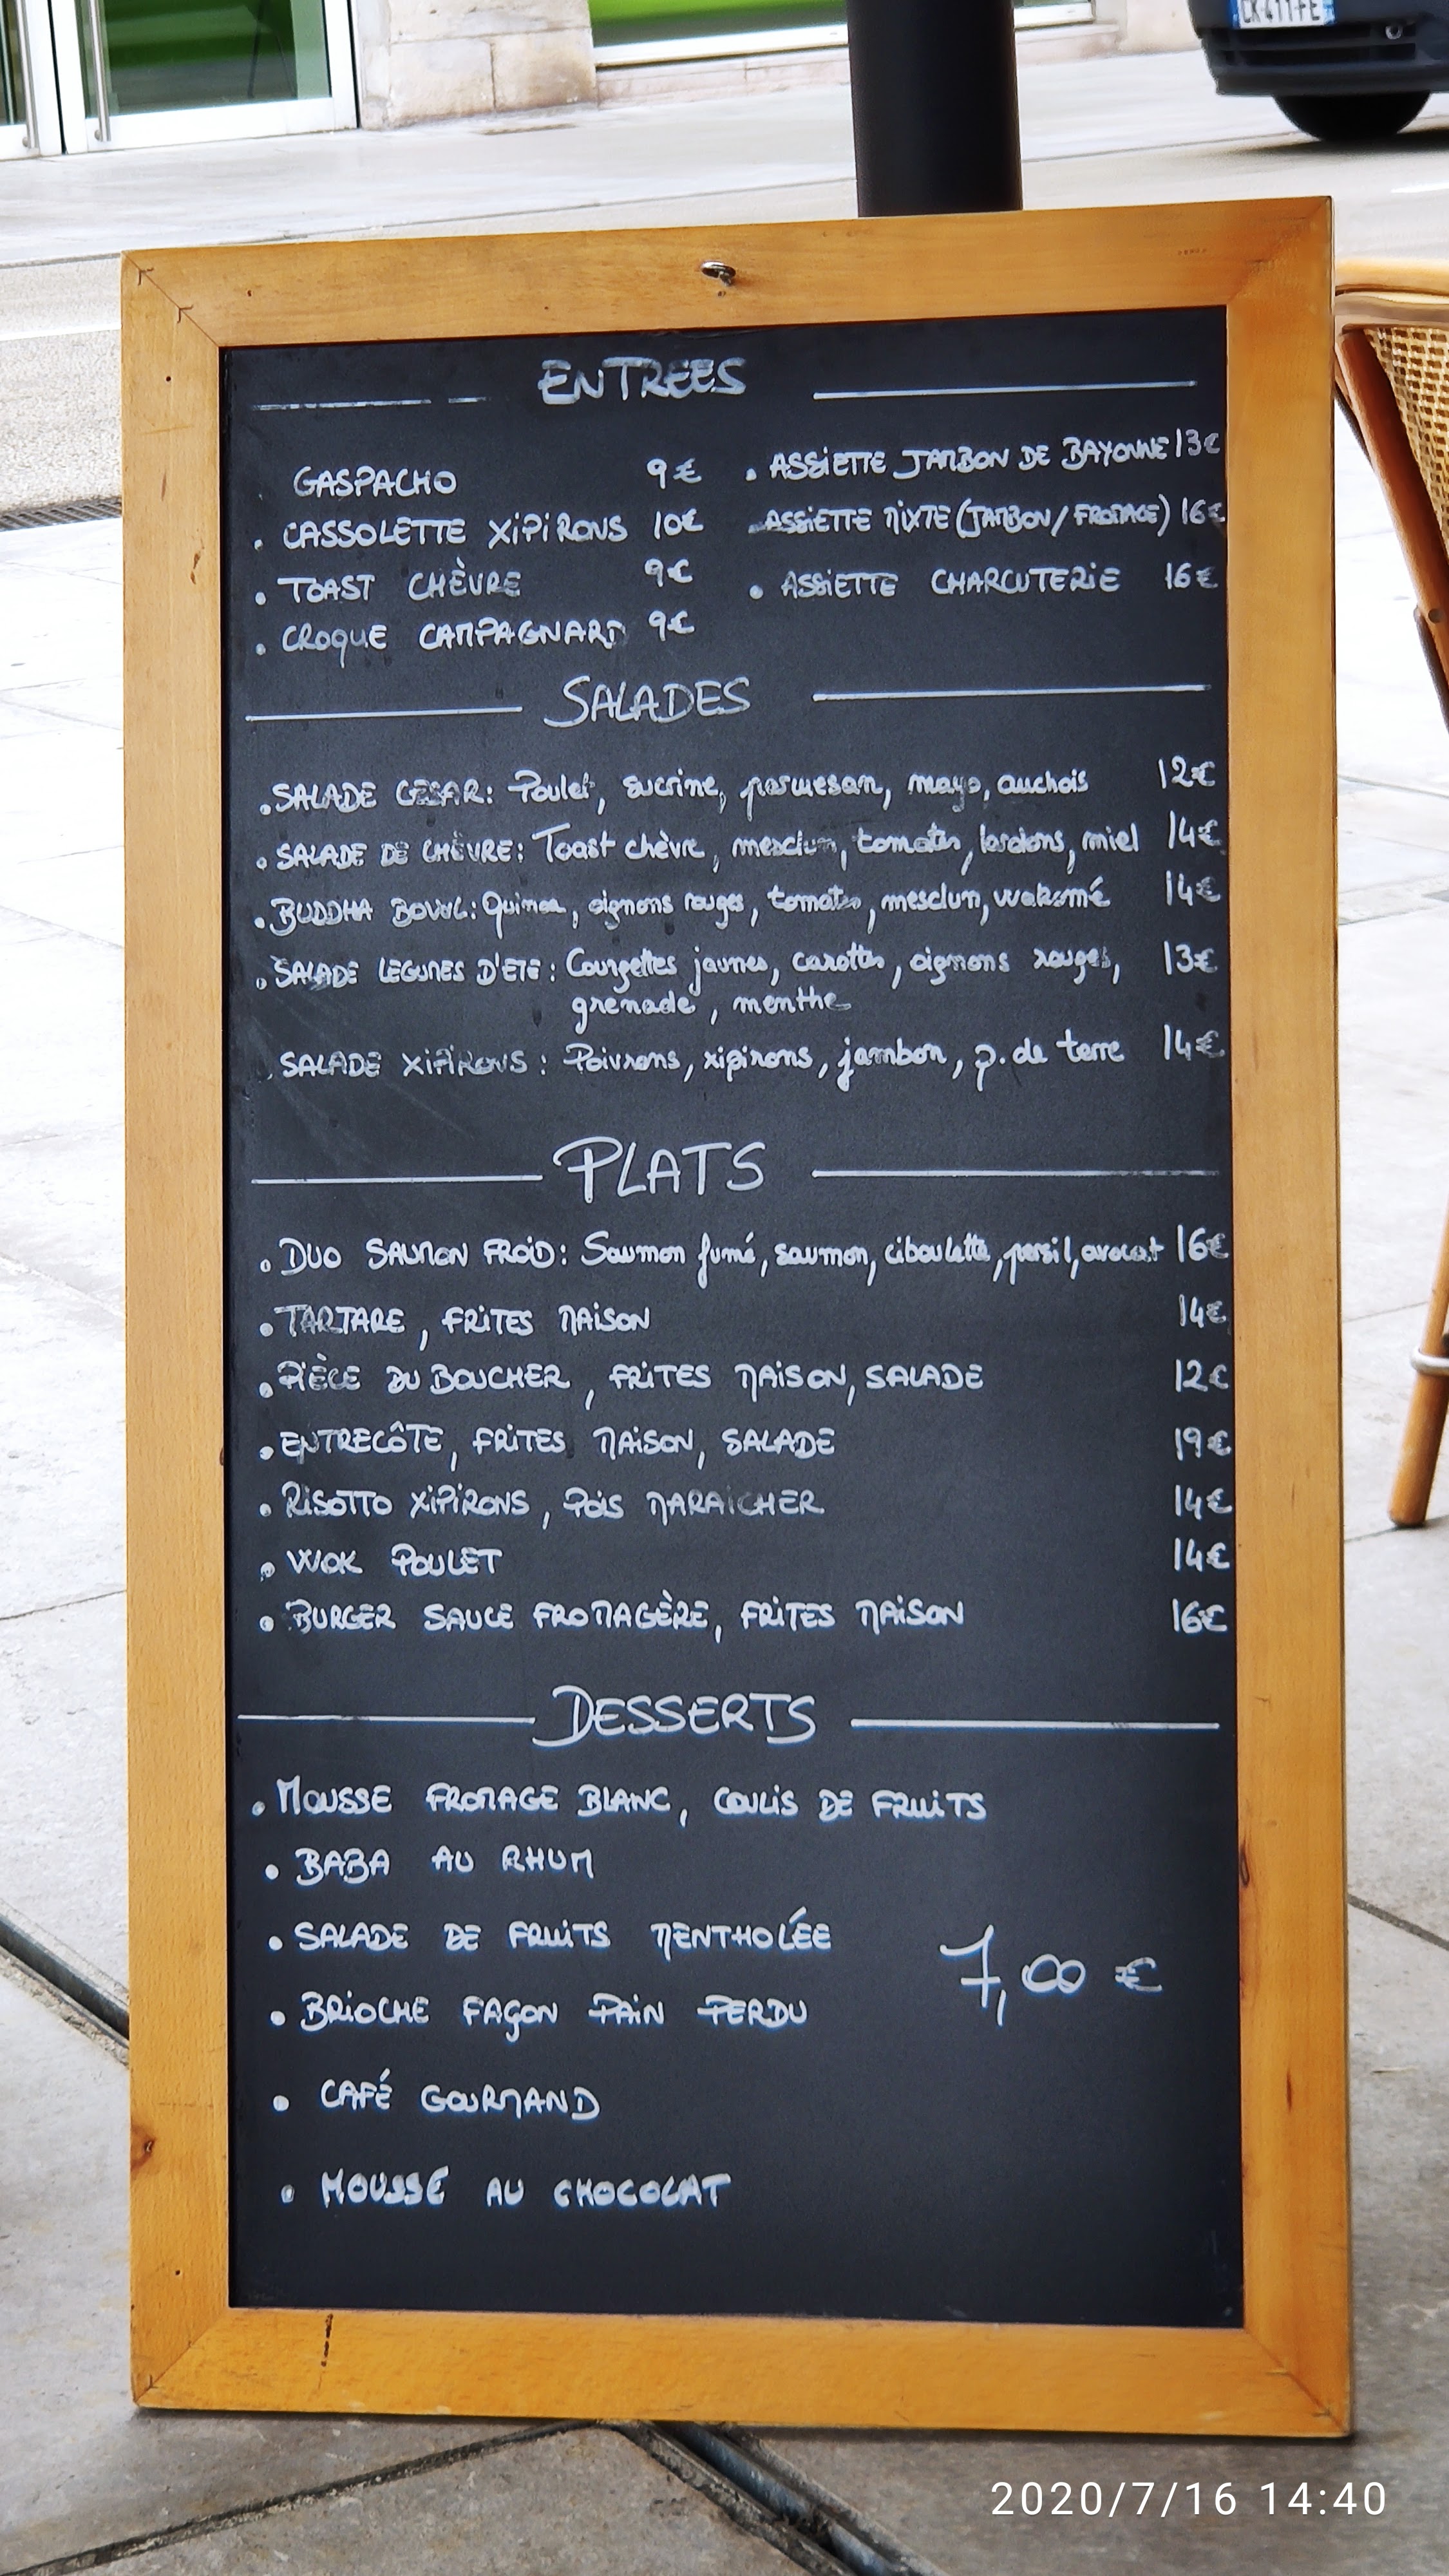 CK-411-FE
ENTREES
GASPACHO 9€
. CASSOLETTE XIPIRONS 10€
. TOAST CHÈVRE 9€
. CROQUE CAMPAGNARD 9€
. ASSIETTE JAMBON DE BAYONNE 13€
. ASSIETTE MIXTE (JAMBON/FROMAGE) 16€
. ASSIETTE CHARCUTERIE 16€
SALADES
. SALADE CESAR: Poulet, sucrine, parmesan, mayo, anchois 12€
. SALADE DE CHÈVRE: Toast chèvre, mesclun, tomates, lardons, miel 14€
. BUDDHA BOWL: Quinoa, oignons rouges, tomates, mesclun, wakamé 14€
. SALADE LEGUMES D'ETE: Courgettes jaunes, carottes, oignons rouges, 13€
grenade, menthe
. SALADE XIPIRONS: Poivrons, xipirons, jambon, p. de terre 14€
PLATS
. DUO SAUMON FROID: Saumon fumé, saumon, ciboulette, persil, avocat 16€
. TARTARE, FRITES MAISON 14€
. PIÈCE DU BOUCHER, FRITES MAISON, SALADE 12€
. ENTRECÔTE, FRITES MAISON, SALADE 19€
. RISOTTO XIPIRONS, POIS MARAICHER 14€
. WOK POULET 14€
. BURGER SAUCE FROMAGÈRE, FRITES MAISON 16€
DESSERTS
. MOUSSE FROMAGE BLANC, COULIS DE FRUITS
. BABA AU RHUM
. SALADE DE FRUITS MENTHOLÉE
. BRIOCHE FAÇON PAIN PERDU
7,00 €
. CAFÉ GOURMAND
. MOUSSE AU CHOCOLAT
2020/7/16 14:40